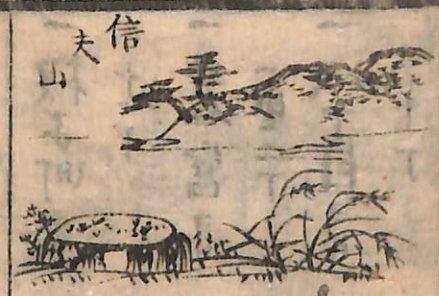 信夫山